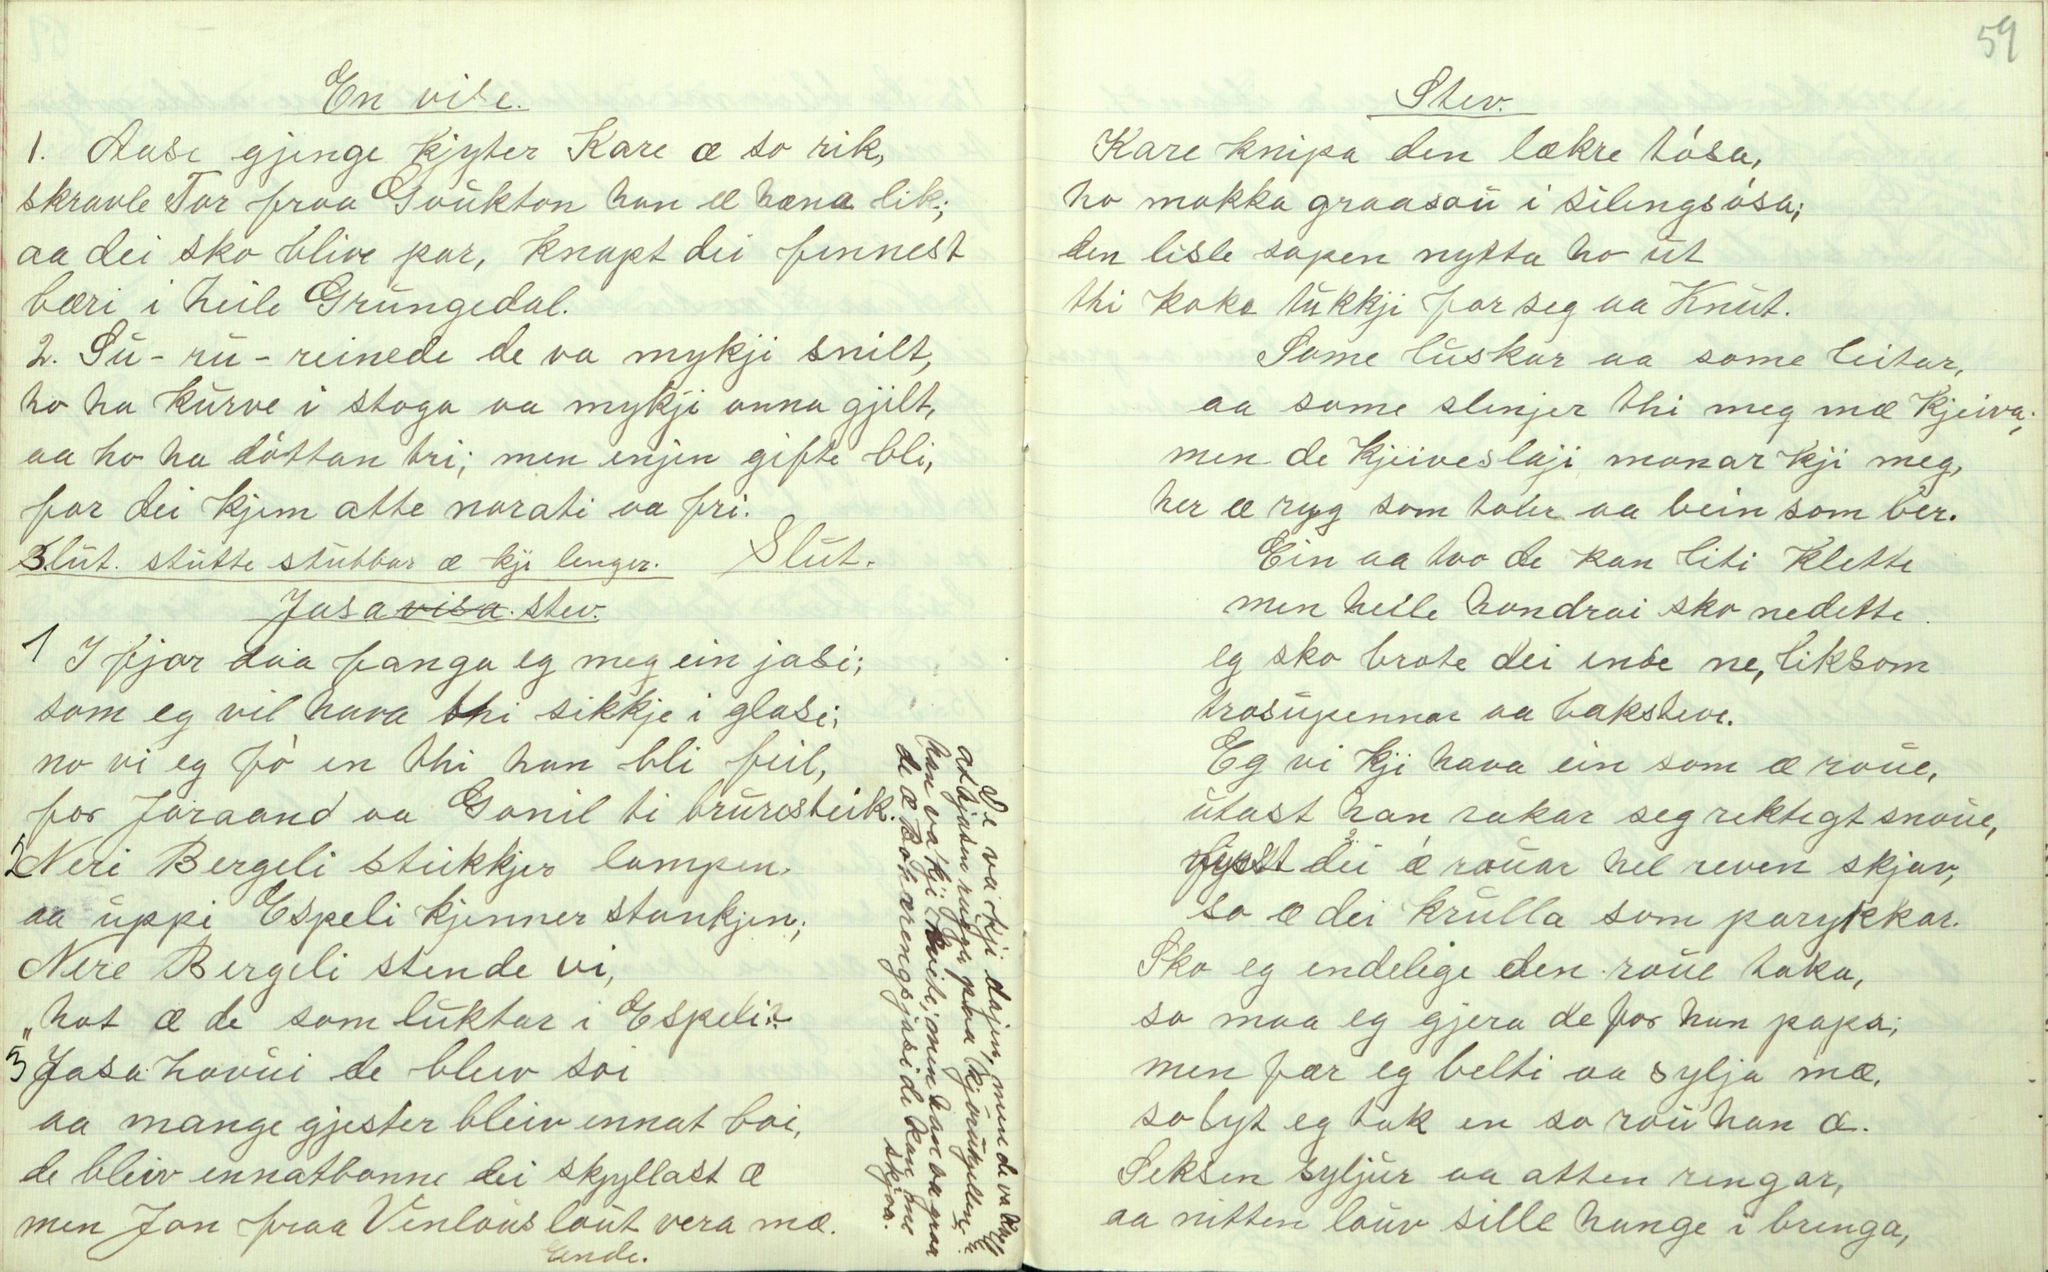 En vise.
1. Aase gjenge kjyter Kare æ so rik,
skravle Tor fraa Goùkton han æ hæna lik;
aa dei sko blive par, knapt dei finnest
bæri i heile Grùngedal.
2. Sù-rù-reinede de va mykji snilt,
ho ha kùrve i stoga aa mykji anna gjilt,
aa ho ha dóttan tri; men enjen gifte bli,
for dei kjem atte norati aa fri.
3. Slùt. stùtte stùbbar æ kji lenger. Slùt.
Jasa visa. stev.
1 I fjor daa fanga eg meg ein jasi;
som eg vil hava thi sikkje i glasi;
no vi eg fó en thi han bli feil,
for Joraand aa Gonil ti brùresteik.
2 Neri Bergeli stiikkjer lampen.
aa ùppi Espeli kjenner stankjen;
Nere Bergeli stende vi,
"hot æ de som lùktar i Espeli?"
3 Jasahovùi de bleiv soi
aa mange gjester bleiv ennat boi,
de bleiv ennatbonne dei skjyllast æ
men Jon fraa Vinloùs loùt vera mæ.
Ende.
De va kji dajin, men de va
asbjøsen rùgga paa
han va kji kveite, men han va graa
de æ jasi de kan ine
skjøa.
59
Stev.
Kare knipa den lækre tósa,
ho makka graasoù i silengsósa;
den lisle sapen nytta ho ùt
thi koka tùkkji for seg aa Knùt.
Some lùskar aa some leitar,
aa some slenjer thi meg mæ kjeiva;
men de kjeiveslaji monar kji meg,
her æ ryg som toler aa bein som ber.
Ein aa two de kan liti klette
men heile hondrai sko nedette.
eg sko brote dei ende ne, liksom
trosùpennar aa baksteve.
Eg vi kji hava ein som æ roùe,
ùtast han rakar seg rektegt snoùe,
dei æ roùar hel reven skjav,
so æ dei krùlla som parykkar.
Sko eg endelige den roùe taka,
so maa eg gjera de for han papa;
men fær eg belti aa sylja mæ,
so lyt eg tak en so roù han æ.
Seksen syljùr aa atten rengar,
aa nitten loùv sille hange i brenga,